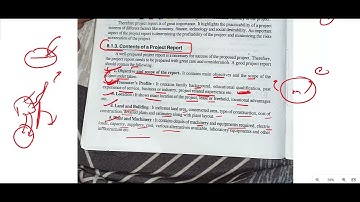 Therefore project report is of great importance. It highlights the practicability of a project
in terms of different factors like economy, finance, technology and social desirability. An important
aspect of the project report is determining the profitability of the project and minimizing the risks
in execution of the project
8.1.3. Contents of a Project Report
A well-prepared project report is a necessary for success of the proposed project. Therefore,
the project report needs to be prepared with great care and consideration. A good project report
should contain the
1. Objectives and scope of the report. It contains main objectives and the scope of the
under taken.
Promoter's Profile : It contains family background, educational qualification, past
experience of service, business or industry, project related experience etc.
Location : It shows exact location of the project, lease or freehold, locational advantages
etc.
4. Land and Building : It indicates land area, construction area, type of construction, cost of
construction, detailed plans and estimates along with plant layout.
5. Plant and Machinery : It contains details of machinery and equipments required,
capacity, suppliers, cost, various alternatives available, laboratory equipments and other
infrastructure etc.
m